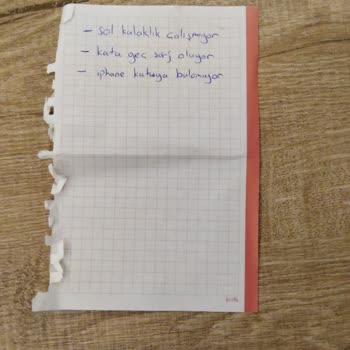 - sol kulaklık çalışmıyor
- kutu geç şarj oluyor
- iphone kutuyu bulamıyor